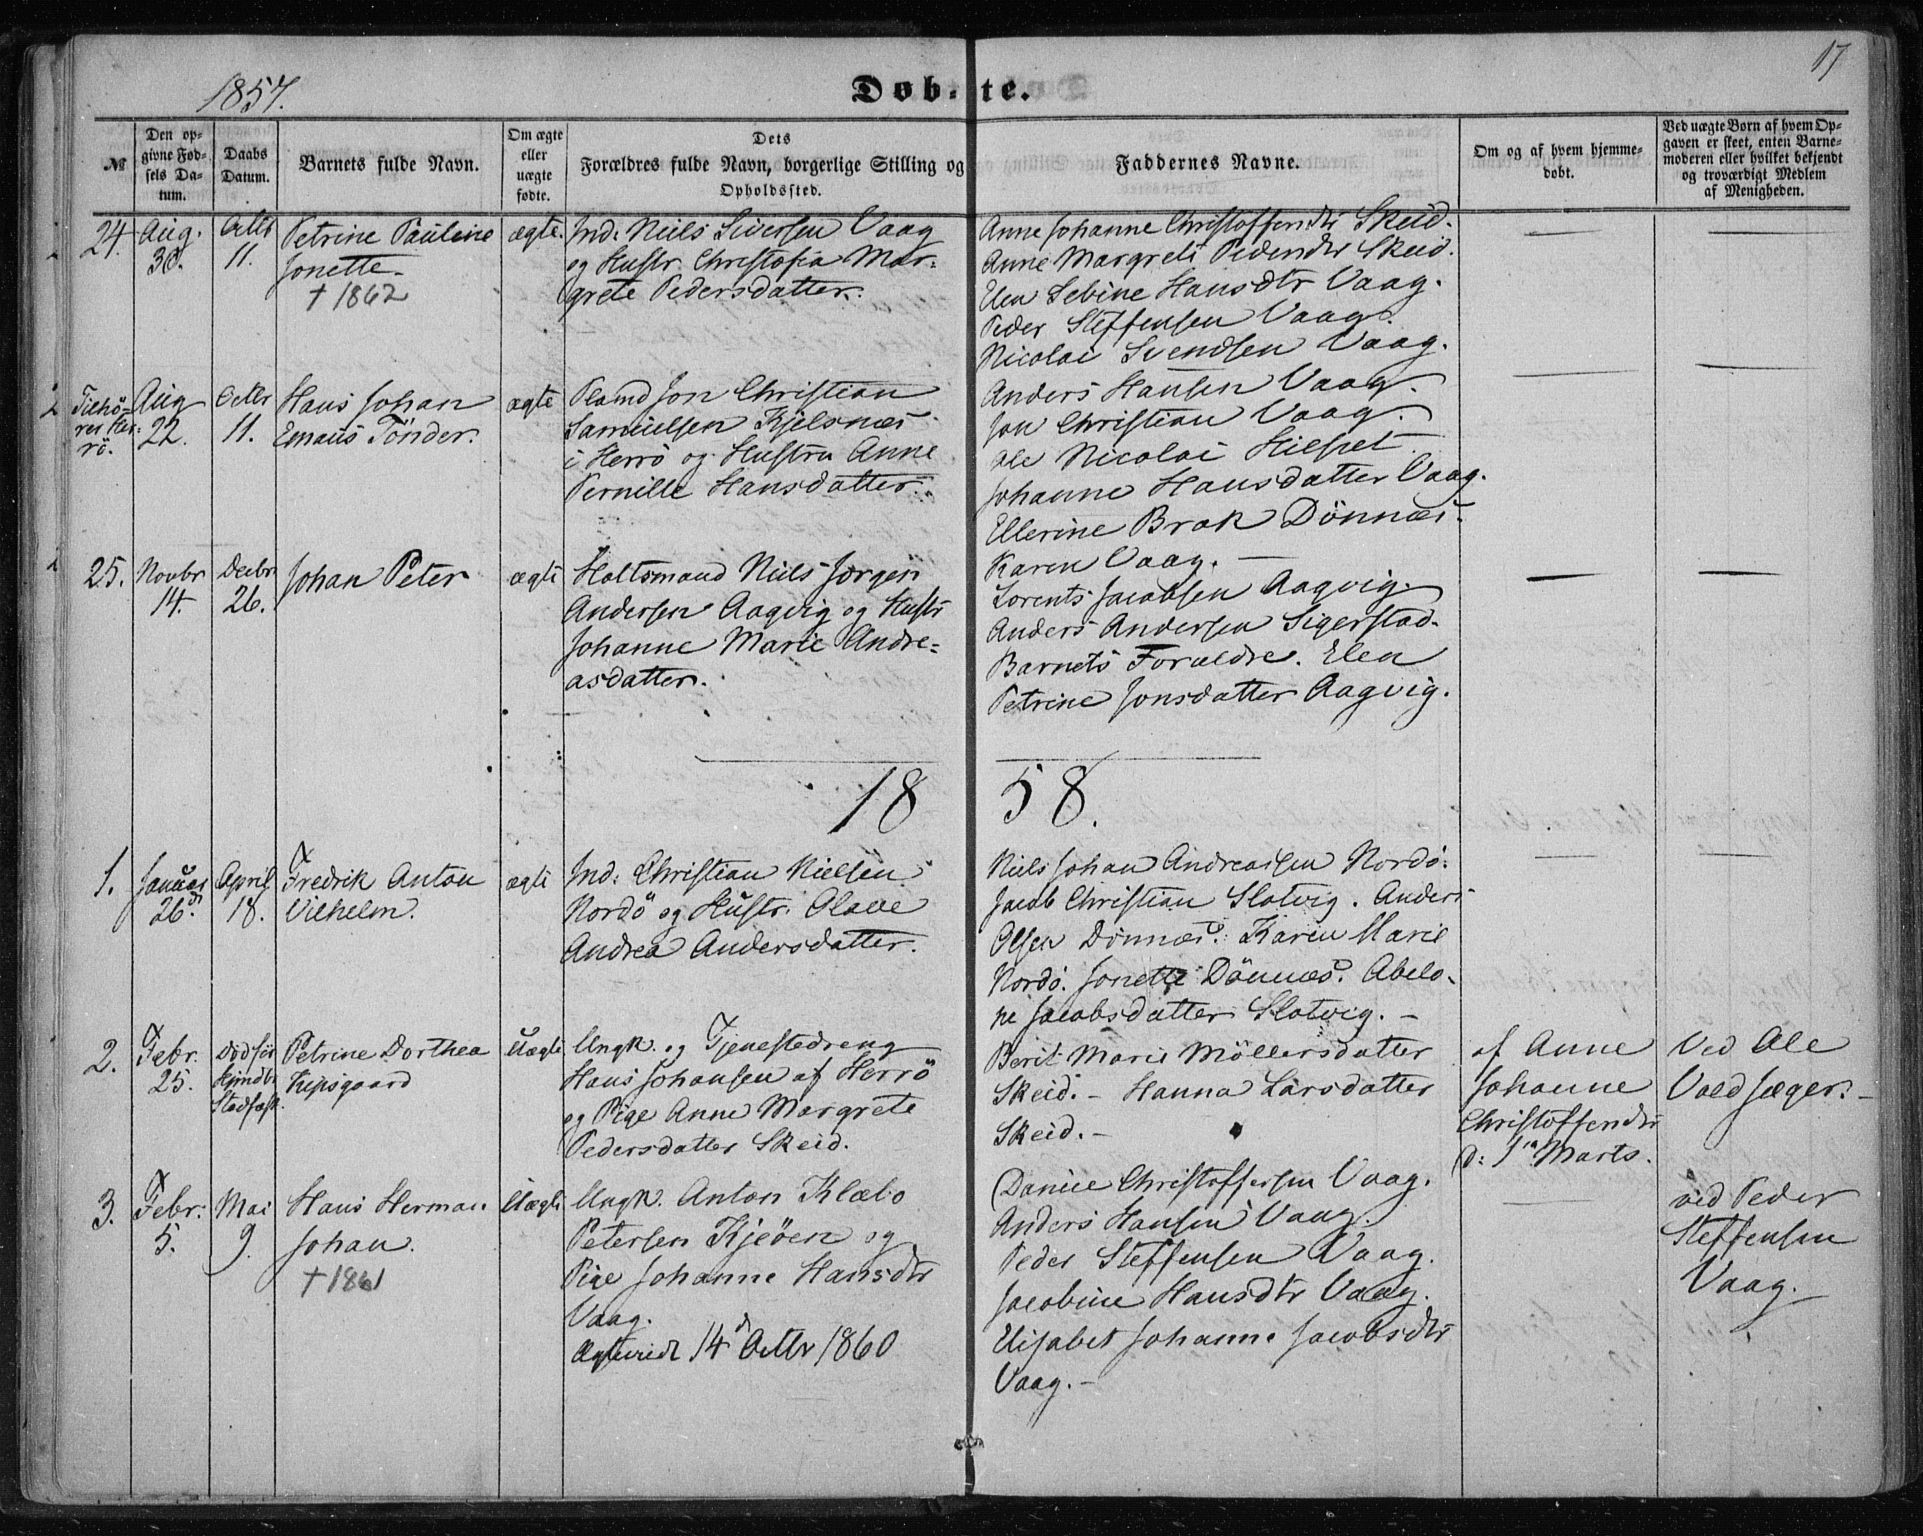 1857.
Døbte.
17
№
Den opgivne Fødsels Datum.
Daabs Datum.
Barnets fulde Navn.
Om ægte eller uægte fødte.
Dets Forældres fulde Navn, borgerlige Stilling og Opholdssted.
Faddernes Navne.
Om og af hvem hjemmedøbt.
Ved uægte Børn af hvem Opgaven er skeet, enten Barnemoderen eller hvilket bekjendt og troværdigt Medlem af Menigheden.
24.
Aug. 30.
Octbr 11.
Petrine Pauline
Jonette.
† 1862
ægte.
Ind: Niels Siversen Vaag
og Hustr. Christofia Mar-
grete Pedersdatter.
Anne Johanne Christoffersdtr Skeid.
Anne Margrete Pedersdtr Skeid.
Elen Sebine Hansdtr Vaag.
Peder Steffensen Vaag.
Nicolai Svendsen Vaag.
Tilhö-
rer Her-
rö.
Aug 22.
Octbr 11.
Hans Johan
Emaus Tönder.
ægte
Plmd Jon Christian
Samuelsen Kjelsnæs
i Herrö og Hustru Anne
Pernille Hansdatter.
Anders Hansen Vaag.
Jon Christian Vaag.
Ole Nicolai
Johanne Hansdatter Vaag.
Ellerine Brok Dönnæs.
Karen Vaag. —
25.
Novbr 14.
Decbr 26.
Johan Peter
ægte
Holtsmand Niels Jørgen
Andersen Aagvig og Hustr
Johanne Marie Andre-
asdatter.
Lorents Jacobsen Aagvig.
Anders Andersen Sigerstad.
Barnets Forældre. Elen
Petrine Jonsdatter Aagvig.
18 58.
1.
Januar 26de
April 18.
Fredrik Anton
Vilhelm.
ægte
Ind: Christian Nielsen
Nordö og Hustr. Olave
Andrea Andersdatter.
Niels Johan Andreassen Nordö.
Jacob Christian Slotvig. Anders
Olsen Dönnæs. Karen Marie
Nordö. Jonette Dönnæs. Abelo-
ne Jacobsdatter Slotvig. —
2.
Febr. 25.
Död för
Stadfæst.
Petrine Dorthea
Uægte
Ungk. og Tjenestedreng
Hans Johansen af Herrö
og Pige Anne Margrete
Pedersdatter Skeid.
Berit Marie Möllersdatter
Skeid. — Hanna Larsdatter
Skeid. —
af Anne
Johanne
Christoffersdtr
d: 1ste Marts.
Ved Ole
Valdsæger. —
3.
Febr: 5.
Mai 9.
Hans Herman
Johan.
† 1861
Uægte
Ungk. Anton Klæbo
Petersen Kjöen og
Pige Johanne Hansdtr
Vaag.
Ægteviet 14d Octbr 1860
Daniel Christoffersen Vaag.
Anders Hansen Vaag.
Peder Steffensen Vaag.
Jacobine Hansdtr Vaag.
Elisabet Johanna Jacobsdtr
Vaag. —
ved Peder
Steffensen
Vaag.